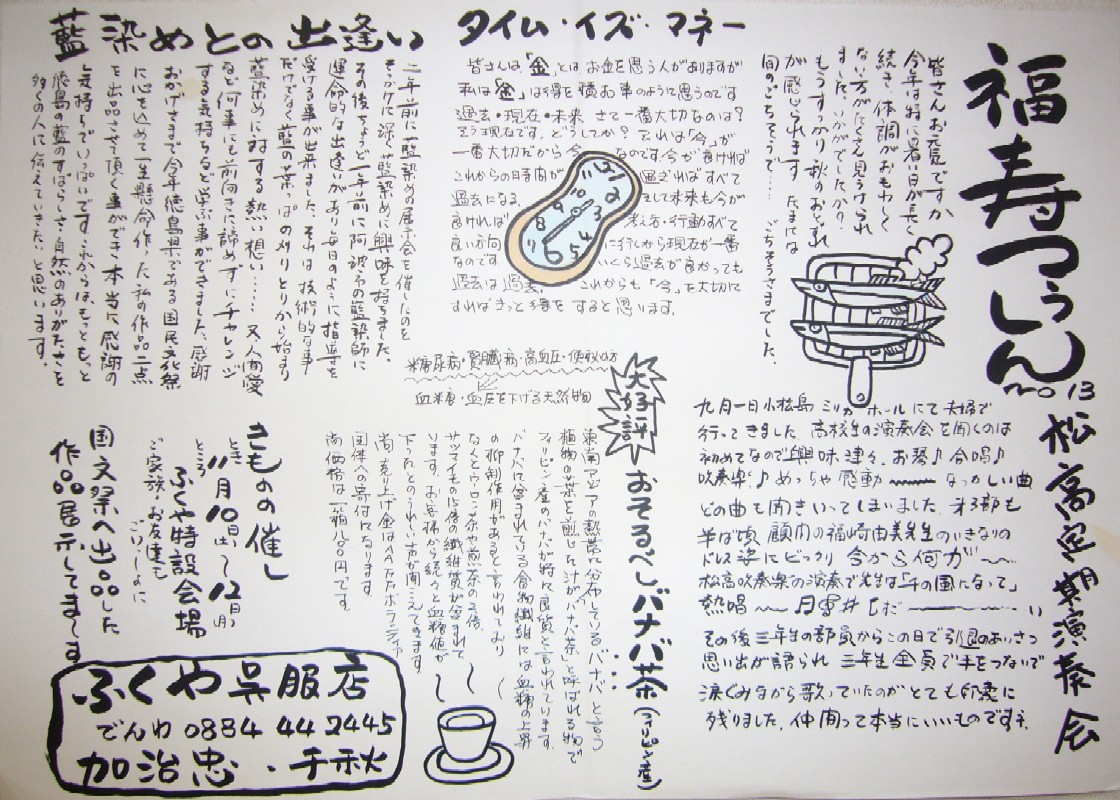 福寿つうしん
no 13
皆さんお元気ですか
今年は特に暑い日が長く
続き、体調がおもわしく
ない方がたくさん見うけられ
ましたが、いかがでしたか？
もうすっかり秋のおとずれ
が感じられます。たまには
間のごちそうで…… ごちそうさまでした。
タイム・イズ・マネー
皆さんは「金」とは、お金を思う人がありますが
私は「金」は得を積むお事のように思うのです
過去・現在・未来 さて一番大切なのは？
そう現在です。どうしてか？それは「今」が
一番大切だから今 なのです。今が良ければ
これからの時間が 過ぎればすべて
過去になる。 そして未来も今が
良ければ 考え方・行動すべて
良い方向 に行くから現在が一番
なのです。 いくら過去が良かっても
過去は過去。 これからも「今」を大切に
すればきっと得を すると思います。
藍染めとの出逢い
二年前に藍染めの展示会を催したのを
きっかけに深く藍染めに興味を持ちました。
その後ちょうど一年前に阿波市の藍染師に
運命的な出逢いがあり毎日のように指導を
受ける事が出来ました。それは技術的な事
だけでなく藍の葉っぱの刈りとりから始まり
藍染めに対する熱い想い…… 又人間愛
など何事にも前向きに諦めずにチャレンジ
する気持ちなど学ぶ事ができました。感謝
おかげさまで今年徳島県である国民文化祭
に心を込めて一生懸命作った私の作品二点
を出品させて頂く事ができ本当に感謝の
気持ちでいっぱいです。これからはもっともっと
徳島の藍のすばらしさ、自然のありがたさを
多くの人に伝えていきたいと思います。
松高定期演奏会
九月一日小松島ミリカホールにて夫婦で
行ってきました。高校生の演奏会を聞くのは
初めてなので興味津々。お琴♪合唱♪
吹奏楽♪めっちゃ感動〜〜 なつかしい曲
どの曲も聞きいってしまいました。オ3部も
半ば頃 顧問の福崎由美先生のいきなりの
ドレス姿にビックリ 今から何が〜〜
松高吹奏楽の演奏で先生は「千の風になって」
熱唱〜〜
その後三年生の部員からこの日で引退のあいさつ
思い出が語られ 三年生全員で手をつないで
涙ぐみながら歌っていたのがとても印象に
残りました。仲間って本当にいいものですネ
糖尿病・腎臓病・高血圧・便秘の方
血糖・血圧を下げる天然物
大好評
おそるべしバナバ茶(フィリピン産)
東南アジアの熱帯に分布しているバナバと言う
植物の葉を煎じた汁がバナバ茶と呼ばれる物で
フィリピン産のバナバが特に良質と言われています。
バナバに含まれている食物繊維には血糖の上昇
の抑制作用があると言われており
なんとウーロン茶や煎茶の2倍、
サツマイモの15倍の繊維質が含まれて
います。お客様から続々と血糖値が
下ったとのうれしい声が聞えてきます。
尚、売り上げ金はAAAボランティア
団体への寄付になります。
尚価格は一箱八〇〇円です。
きものの催し
とき
11月10日(土)〜12日(月)
ところ
ふくや特設会場
ご家族・お友達も
ごいっしょに
国文祭へ出品した
作品展示してま〜す
ふくや呉服店
でんわ 0884 44 2445
加治忠・千秋